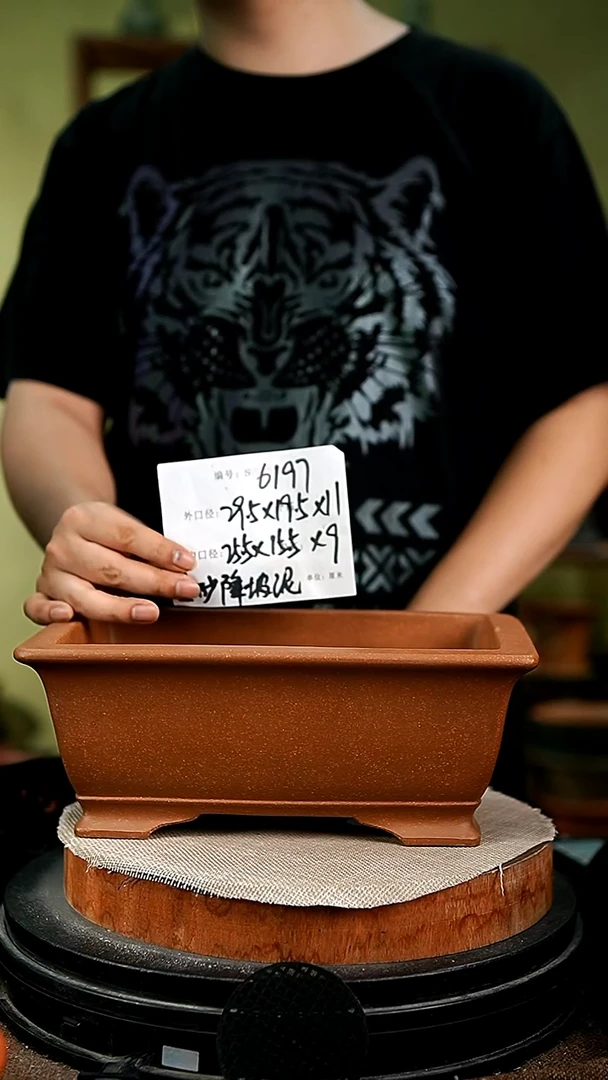 编号：S 6197
外口径：29.5×19.5×11
口径：25.5×15.5×9
砂降坡泥 单位：厘米